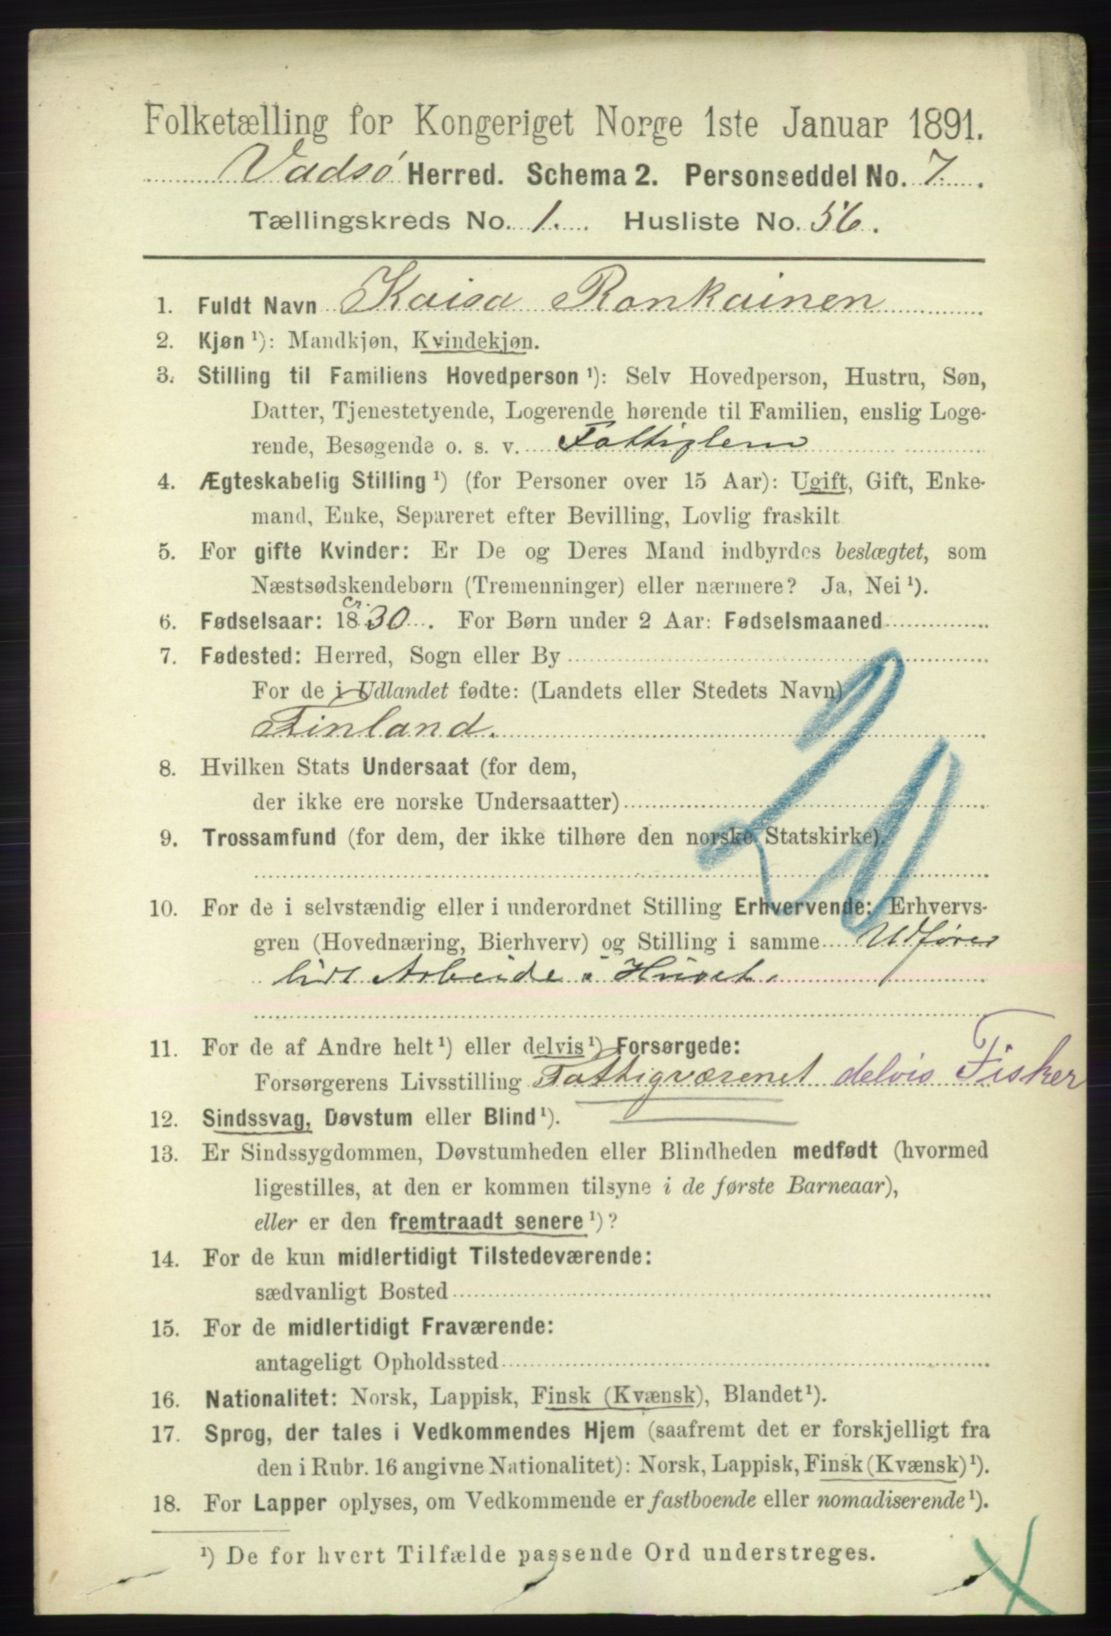 Folketælling for Kongeriget Norge 1ste Januar 1891.
Vadsø Herred. Schema 2. Personseddel No. 7.
Tællingskreds No. 1. Husliste No. 56.
1. Fuldt Navn Kaisa Ronkainen
2. Kjøn ¹): Mandkjøn, Kvindekjøn.
3. Stilling til Familiens Hovedperson ¹): Selv Hovedperson, Hustru, Søn,
Datter, Tjenestetyende, Logerende hørende til Familien, enslig Loge-
rende, Besøgende o. s. v. Fattiglem
4. Ægteskabelig Stilling ¹) (for Personer over 15 Aar): Ugift, Gift, Enke-
mand, Enke, Separeret efter Bevilling, Lovlig fraskilt
5. For gifte Kvinder: Er De og Deres Mand indbyrdes beslægtet, som
Næstsødskendebørn (Tremenninger) eller nærmere? Ja, Nei ¹).
6. Fødselsaar: 18 cr. 30. For Børn under 2 Aar: Fødselsmaaned
7. Fødested: Herred, Sogn eller By
For de i Udlandet fødte: (Landets eller Stedets Navn)
Finland.
20
8. Hvilken Stats Undersaat (for dem,
der ikke ere norske Undersaatter)
9. Trossamfund (for dem, der ikke tilhøre den norske Statskirke).
10. For de i selvstændig eller i underordnet Stilling Erhvervende: Erhvervs-
gren (Hovednæring, Bierhverv) og Stilling i samme Udfører
lidt Arbeide i Huset.
11. For de af Andre helt ¹) eller delvis ¹) Forsørgede:
Forsørgerens Livsstilling Fattigvæsenet delvis Fisker
12. Sindssvag, Døvstum eller Blind ¹).
13. Er Sindssygdommen, Døvstumheden eller Blindheden medfødt (hvormed
ligestilles, at den er kommen tilsyne i de første Barneaar),
eller er den fremtraadt senere ¹)?
14. For de kun midlertidigt Tilstedeværende:
sædvanligt Bosted
15. For de midlertidigt Fraværende:
antageligt Opholdssted
16. Nationalitet: Norsk, Lappisk, Finsk (Kvænsk), Blandet ¹).
17. Sprog, der tales i Vedkommendes Hjem (saafremt det er forskjelligt fra
den i Rubr. 16 angivne Nationalitet): Norsk, Lappisk, Finsk (Kvænsk) ¹).
18. For Lapper oplyses, om Vedkommende er fastboende eller nomadiserende ¹).
¹) De for hvert Tilfælde passende Ord understreges.